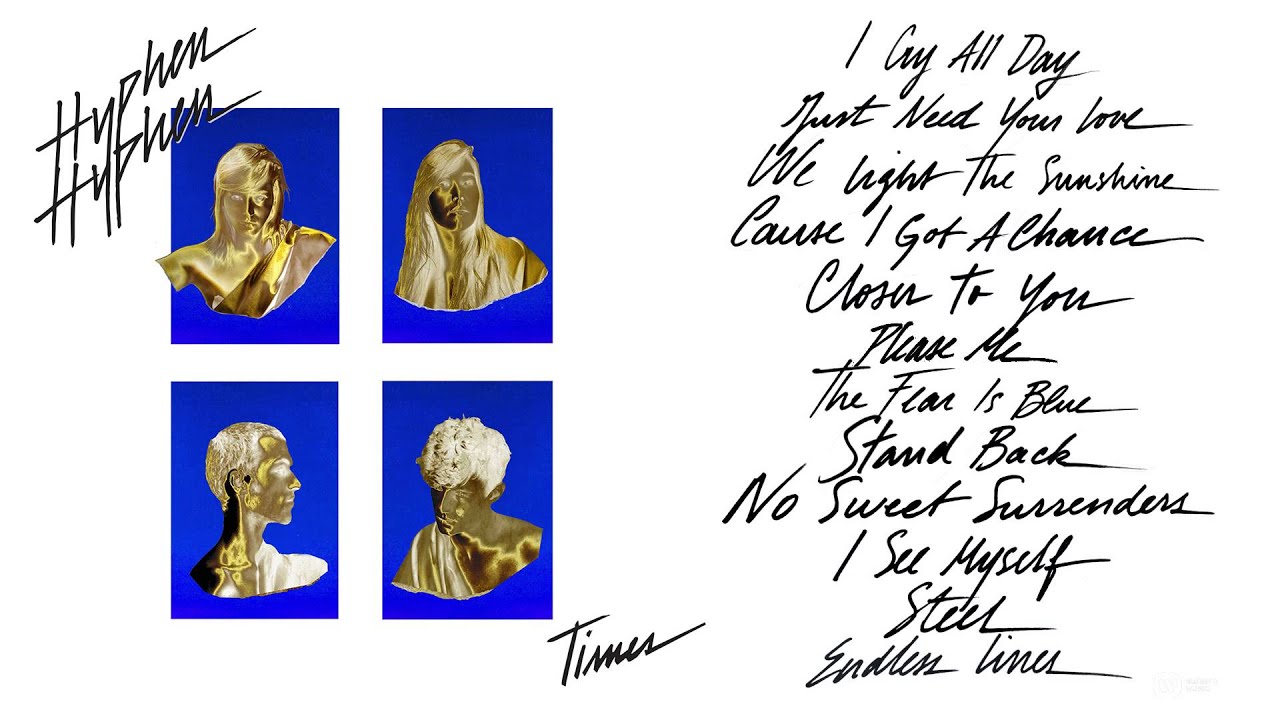 Hyphen
Hyphen
Times
I Cry All Day
Just Need Your Love
We Light The Sunshine
Cause I Got A Chance
Closer To You
Please Me
The Fear Is Blue
Stand Back
No Sweet Surrenders
I See Myself
Steel
Endless Lines